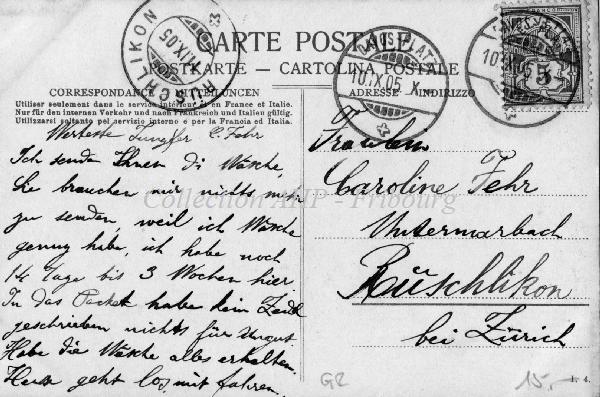 CARTE POSTALE
POSTKARTE — CARTOLINA POSTALE
CORRESPONDANCE MITTEILUNGEN
ADRESSE INDIRIZZO
Utiliser seulement dans le service intérieur et en France et Italie.
Nur für den internen Verkehr und nach Frankreich und Italien gültig.
Utilizzarsi soltanto pel servizio interno e per la Francia ed Italia.
RÜSCHLIKON
IX.05
DAVOS-PLATZ
10.IX.05. X
DAVOS-PLATZ
10.IX.05. X
5
Werteste Jungfer C. Fehr
Ich sende Ihnen di Wäsche,
Sie brauchen mir nichts mehr
zu senden, weil ich Wäsche
genug habe, ich habe noch
14 Tage bis 3 Wochen hier.
In das Packet habe kein
geschrieben nichts für Ungut
Habe die Wäsche alles erhalten.
Heute geht los mit fahren.
Fräulein
Caroline Fehr
Untermarbach
Rüschlikon
bei Zürich
Collection AHP - Fribourg
GR
15.-
1. 4.